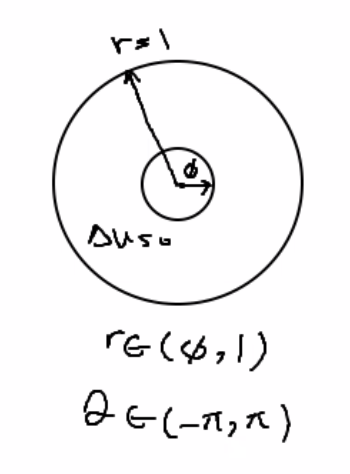 r=1
ϕ
Δu=0
r∈(ϕ,1)
θ∈(-π,π)